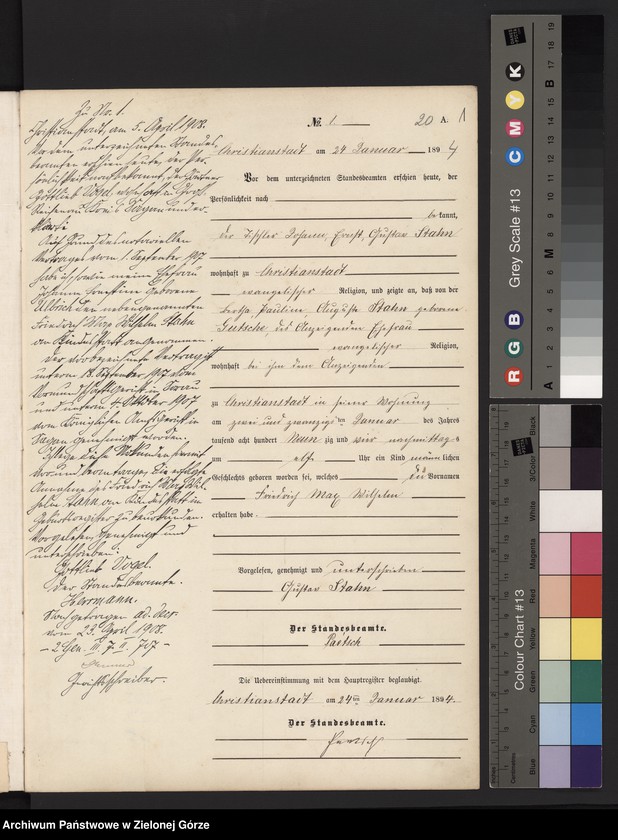 Zu No. 1.
Christianstadt, am 5. April 1908.
Vor dem unterzeichneten Standes-
beamten erschien heute, der Per-
sönlichkeit nach bekannt, der
Gottlieb Vogel, wohnhaft in Groß
Reichenau, Kreis Sagan
Auf Grund des notariellen
Vertrages vom 1. September 1907
habe ich, sowie meine Ehefrau
Johanna Ernestine geborene
Ulbrich den nebengenannten
Friedrich Max Wilhelm Stahn
an Kindes Statt angenommen.
Der vorbezeichnete Vertrag ist
unterm 18. September 1907 vom
Vormundschaftsgericht in Sorau
und unterm 4. Oktober 1907
vom Königlichen Amtsgericht in
Sagan genehmigt worden.
Ich lege diese Urkunden hiermit
vor und beantrage, die erfolgte
Annahme des Friedrich Max Wil-
helm Stahn an Kindes Statt im
Geburtsregister zu beurkunden.
Vorgelesen, genehmigt und
unterschrieben.
Gottlieb Vogel.
Der Standesbeamte.
Herrmann.
Nachgetragen
vom 23. April 1908.
– 2 Gen. III. 7. II. 707 –
Gerichtsschreiber.
№ 1. 20 A. 1
Christianstadt am 24 Januar 1894
Vor dem unterzeichneten Standesbeamten erschien heute, der
Persönlichkeit nach
be kannt,
der Tischler Johann, Ernst, Gustav Stahn
wohnhaft zu Christianstadt
evangelischer Religion, und zeigte an, daß von der
Bertha, Pauline, Auguste Stahn geborene
Gutsche, des Anzeigenden Ehefrau
evangelischer Religion,
wohnhaft bei ihm dem Anzeigenden
zu Christianstadt in seiner Wohnung
am zwei und zwanzigsten Januar des Jahres
tausend acht hundert neun zig und vier nachmittags
um elf Uhr ein Kind männlichen
Geschlechts geboren worden sei, welches die Vornamen
Friedrich Max Wilhelm
erhalten habe.
Vorgelesen, genehmigt und unterschrieben
Gustav Stahn
Der Standesbeamte.
Paetsch
Die Uebereinstimmung mit dem Hauptregister beglaubigt.
Christianstadt am 24ten Januar 1894.
Der Standesbeamte.
Paetsch
Grey Scale #13
R G B M C M Y K
A 1 2 3 4 5 6 M 8 9 10 11 12 13 14 15 B 17 18 19
Colour Chart #13
Blue
Cyan
Green
Yellow
Red
Magenta
White
3/Color
Black
Inches
Centimetres
Archiwum Państwowe w Zielonej Górze